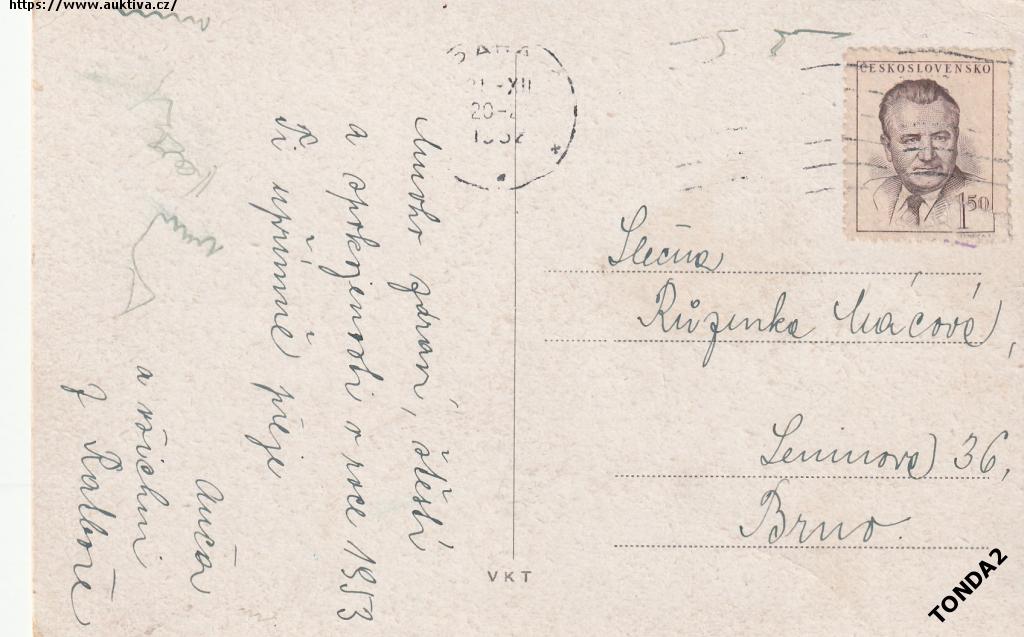 https://www.auktiva.cz/
ČESKOSLOVENSKO
1 50
-XII
20-
1952
Mnoho zdraví, štěstí
a spokojenosti v roce 1953
Ti upřímně přeje
Anča
a všichni
z Ratboře
Slečna
Růzenka Mácová,
Leninova 36,
Brno.
VKT
TONDA2